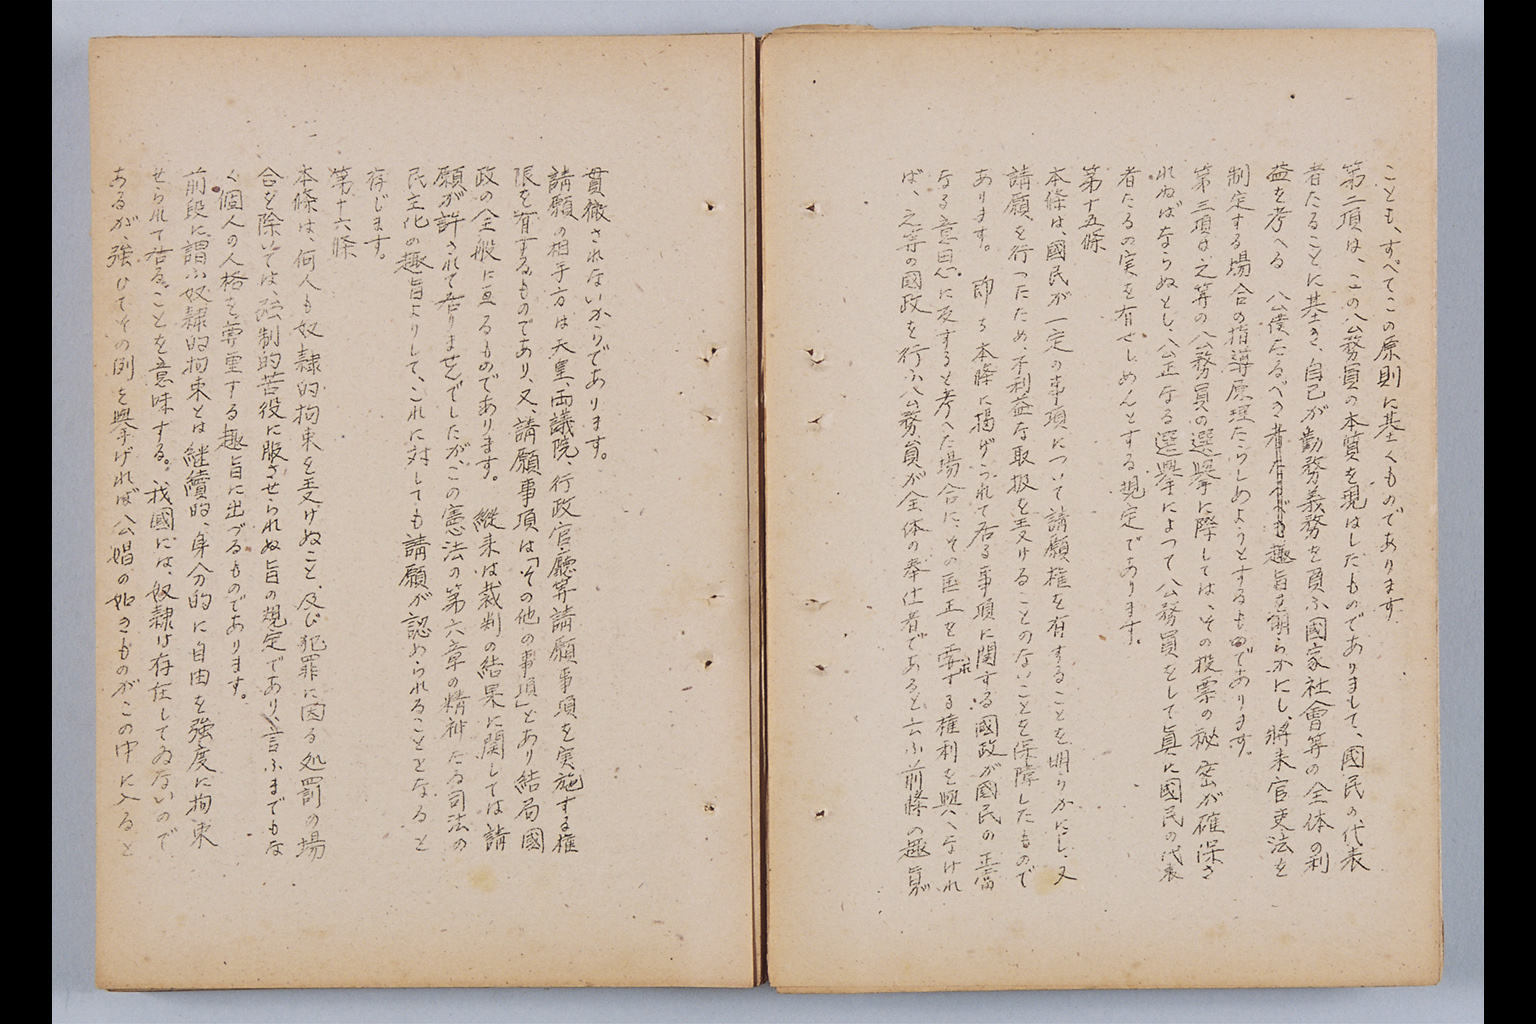 ことも、すべてこの原則に基くものであります。
第二項は、この公務員の本質を現はしたものでありまして、國民の代表
者たることに基き、自己が勤務義務を負ふ國家社會等の全体の利
益を考へる 公僕たるべき趣旨を明らかにし、將来官吏法を
制定する場合の指導原理たらしめようとするものであります。
第三項は之等の公務員の選擧に際しては、その投票の秘密が確保さ
れねばならぬとし、公正なる選擧によつて公務員をして真に國民の代表
者たるの実を有せしめんとする規定であります。
第十五條
本條は、國民が一定の事項について請願権を有することを明らかにし、又
請願を行つたため、不利益な取扱を受けることのないことを保障したもので
あります。 即ち本條に掲げられて居る事項に関する國政が國民の正當
なる意思に反すると考へた場合に、その匡正を要求する権利を與へなけれ
ば、之等の國政を行ふ公務員が全体の奉仕者であると云ふ前條の趣旨が
貫徹されないからであります。
請願の相手方は天皇、両議院、行政官廳等請願事項を実施する権
限を有するものであり、又、請願事項は「その他の事項」とあり結局國
政の全般に亘るものであります。 縦来は裁判の結果に関しては請
願が許されて居りませんでしたが、この憲法の第六章の精神たる司法の
民主化の趣旨よりして、これに対しても請願が認められることとなると
存じます。
第十六條
本條は、何人も奴隷的拘束を受けぬこと、及び犯罪に因る処罰の場
合を除いては、強制的苦役に服させられぬ旨の規定であり、言ふまでもな
く個人の人格を尊重する趣旨に出づるものであります。
前段に謂ふ奴隷的拘束とは継續的、身分的に自由を強度に拘束
せられて居ることを意味する。我國には、奴隷は存在してゐないので
あるが、強ひてその例を擧げれば公娼の如きものがこの中に入ると